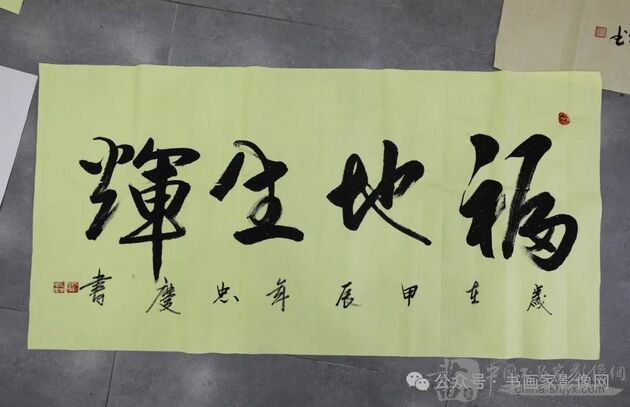 福地生輝
歲在甲辰年忠慶書
公众号·书画家影像网
china-shjyx.com